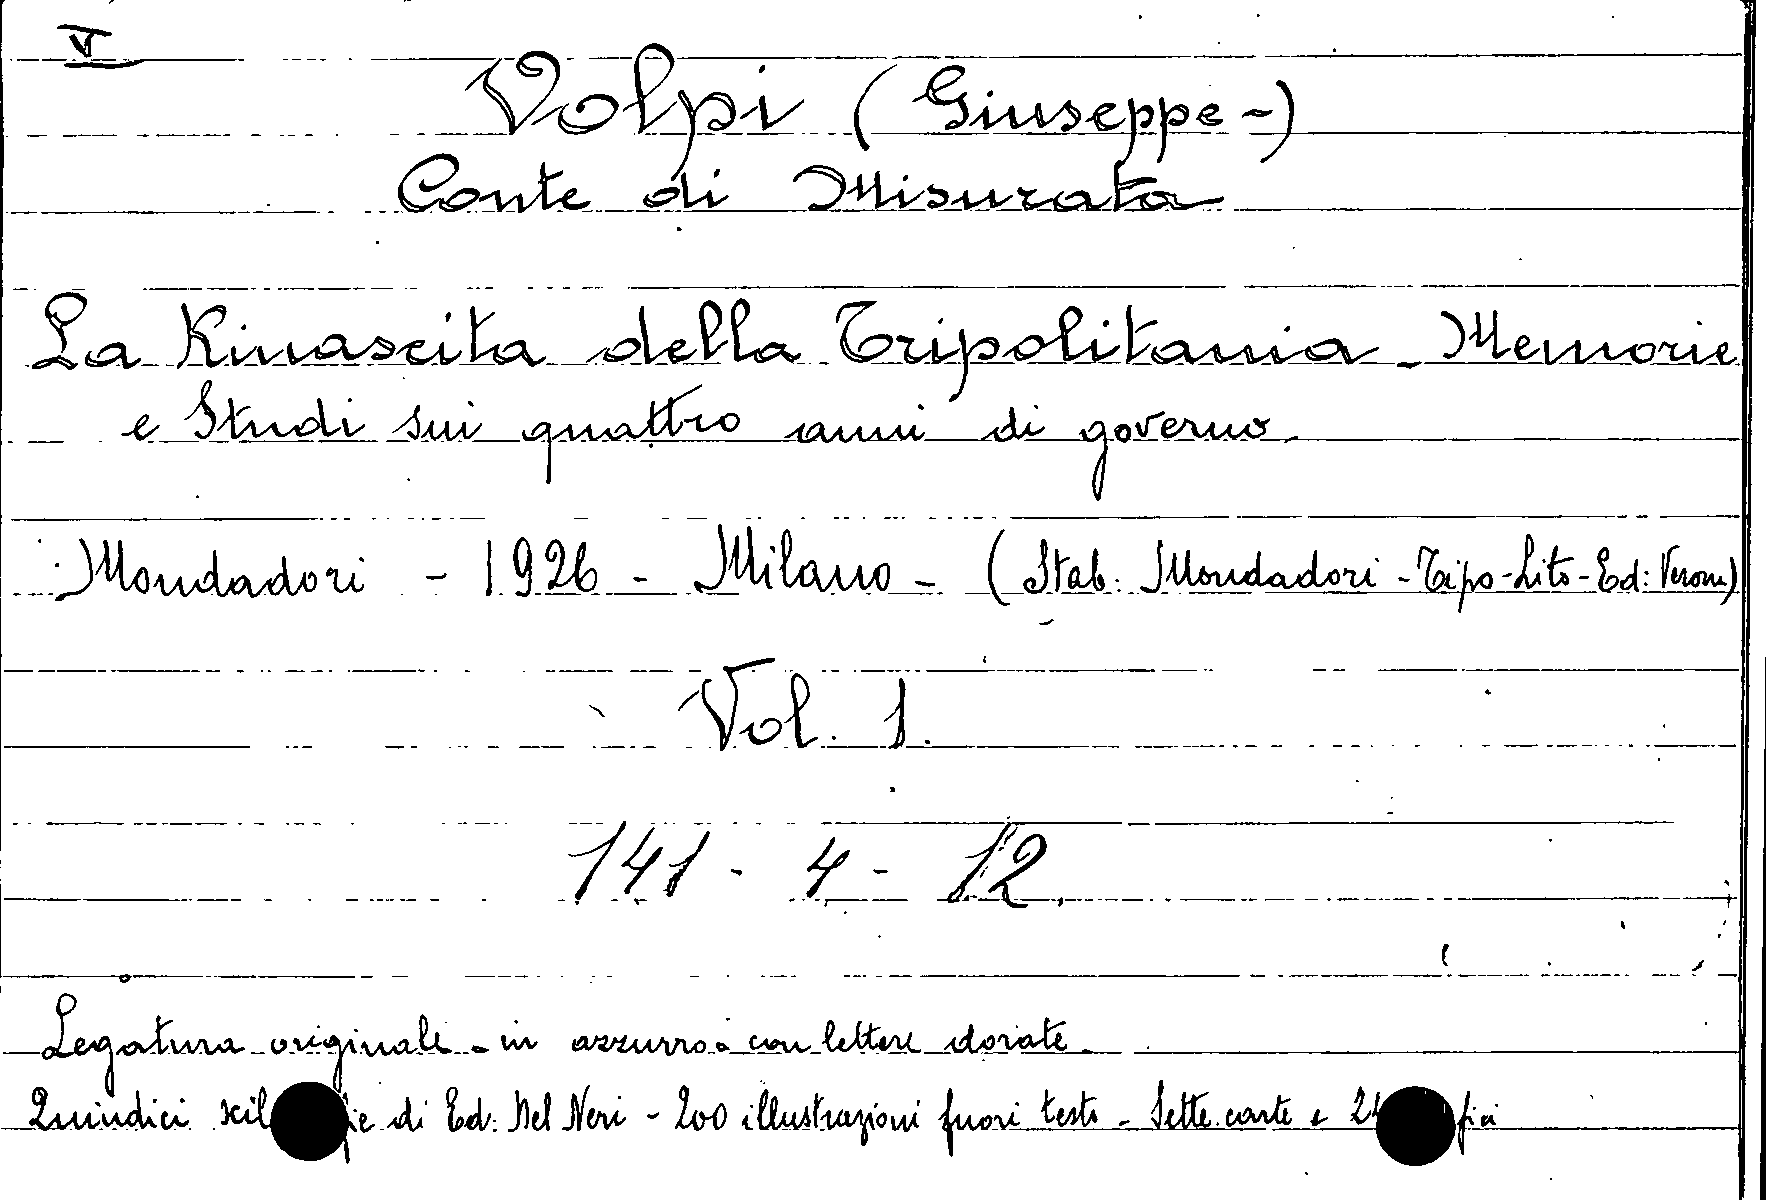 V
Volpi (Giuseppe -)
Conte di Misurata
La Rinascita della Tripolitania - Memorie
e Studi sui quattro anni di governo.
Mondadori - 1926 - Milano - (Stab. Mondadori - Tipo-Lito-Ed: Verona)
Vol. 1.
141 - 4 - 12.
Legatura originale - in azzurro - con lettere dorate.
Quindici di Ed. Del Neri - 200 illustrazioni fuori testo - Sette carte e